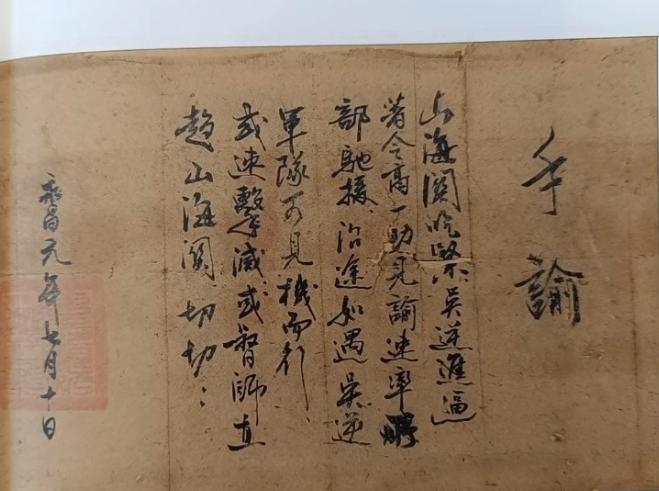 手諭
山海関吃緊吳逆進逼
著令高一功見諭速率
部馳援沿途如遇吳逆
軍隊可見機而行
或速擊滅或督師直
趨山海関切切
永昌元年七月十日